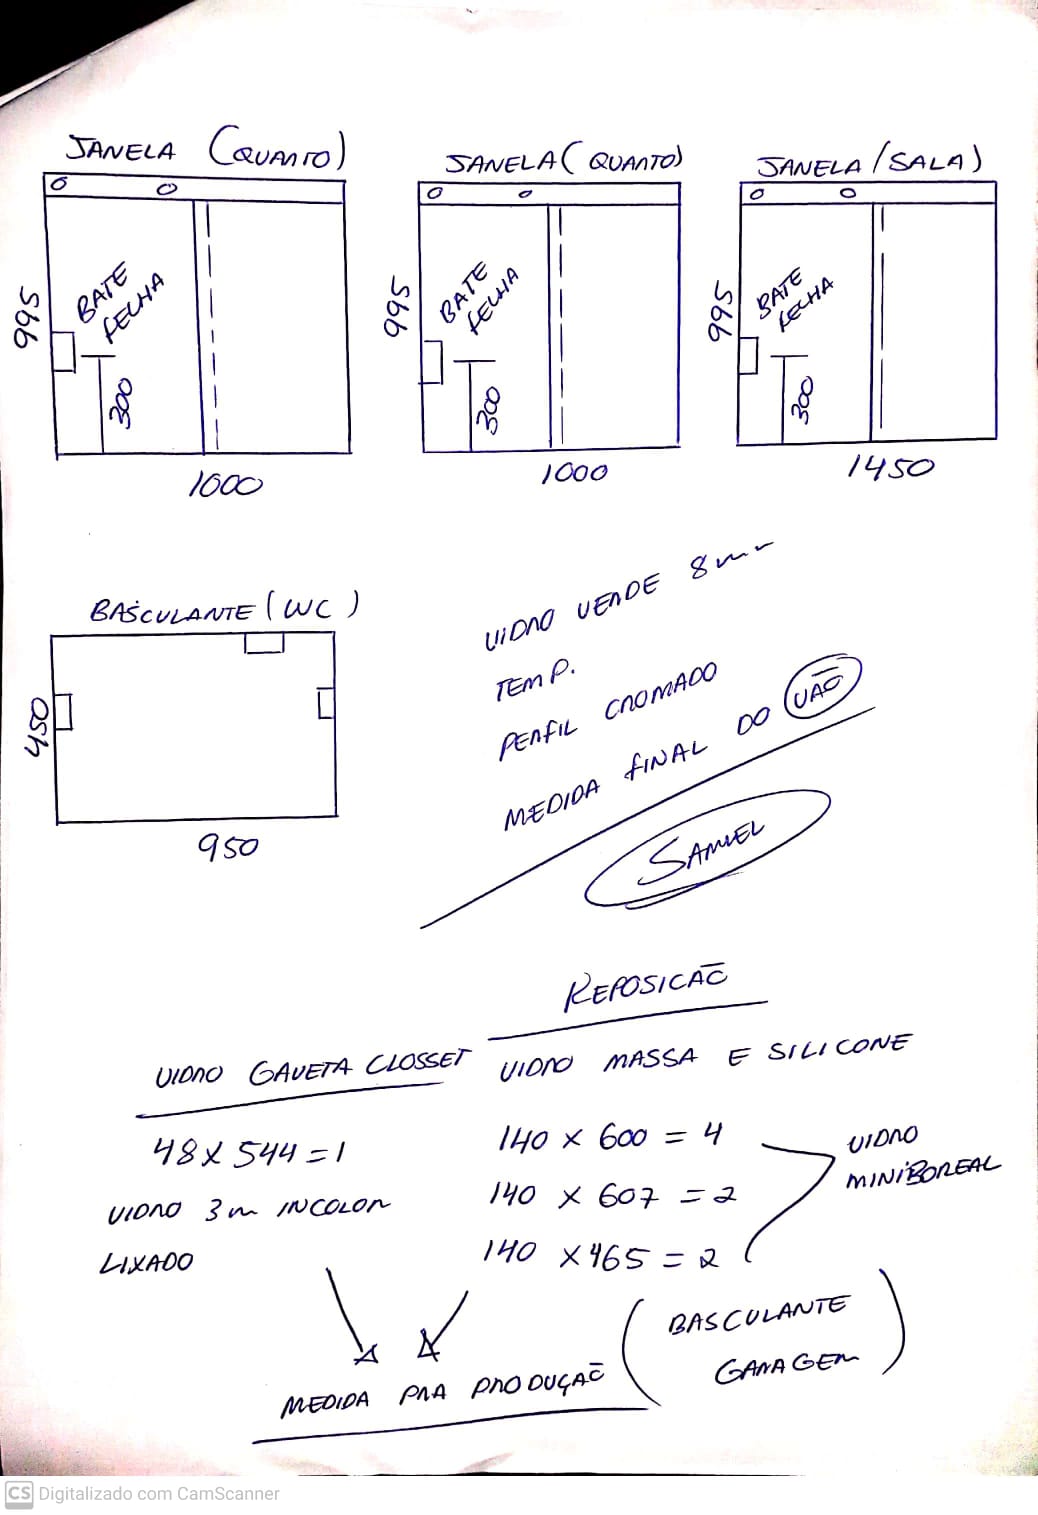 JANELA (QUARTO)
995
BATE
FECHA
300
1000
JANELA (QUARTO)
995
BATE
FECHA
300
1000
JANELA (SALA)
995
BATE
FECHA
300
1450
BASCULANTE (WC)
450
950
VIDRO VERDE 8mm
TEMP.
PERFIL CROMADO
MEDIDA FINAL DO VÃO
SAMUEL
REPOSICÃO
VIDRO GAVETA CLOSSET
48 X 544 = 1
VIDRO 3m INCOLOR
LIXADO
VIDRO MASSA E SILICONE
140 X 600 = 4
140 X 607 = 2
140 X 465 = 2
VIDRO
MINIBOREAL
MEDIDA PRA PRODUÇÃO
(BASCULANTE
GARAGEM)
CS Digitalizado com CamScanner